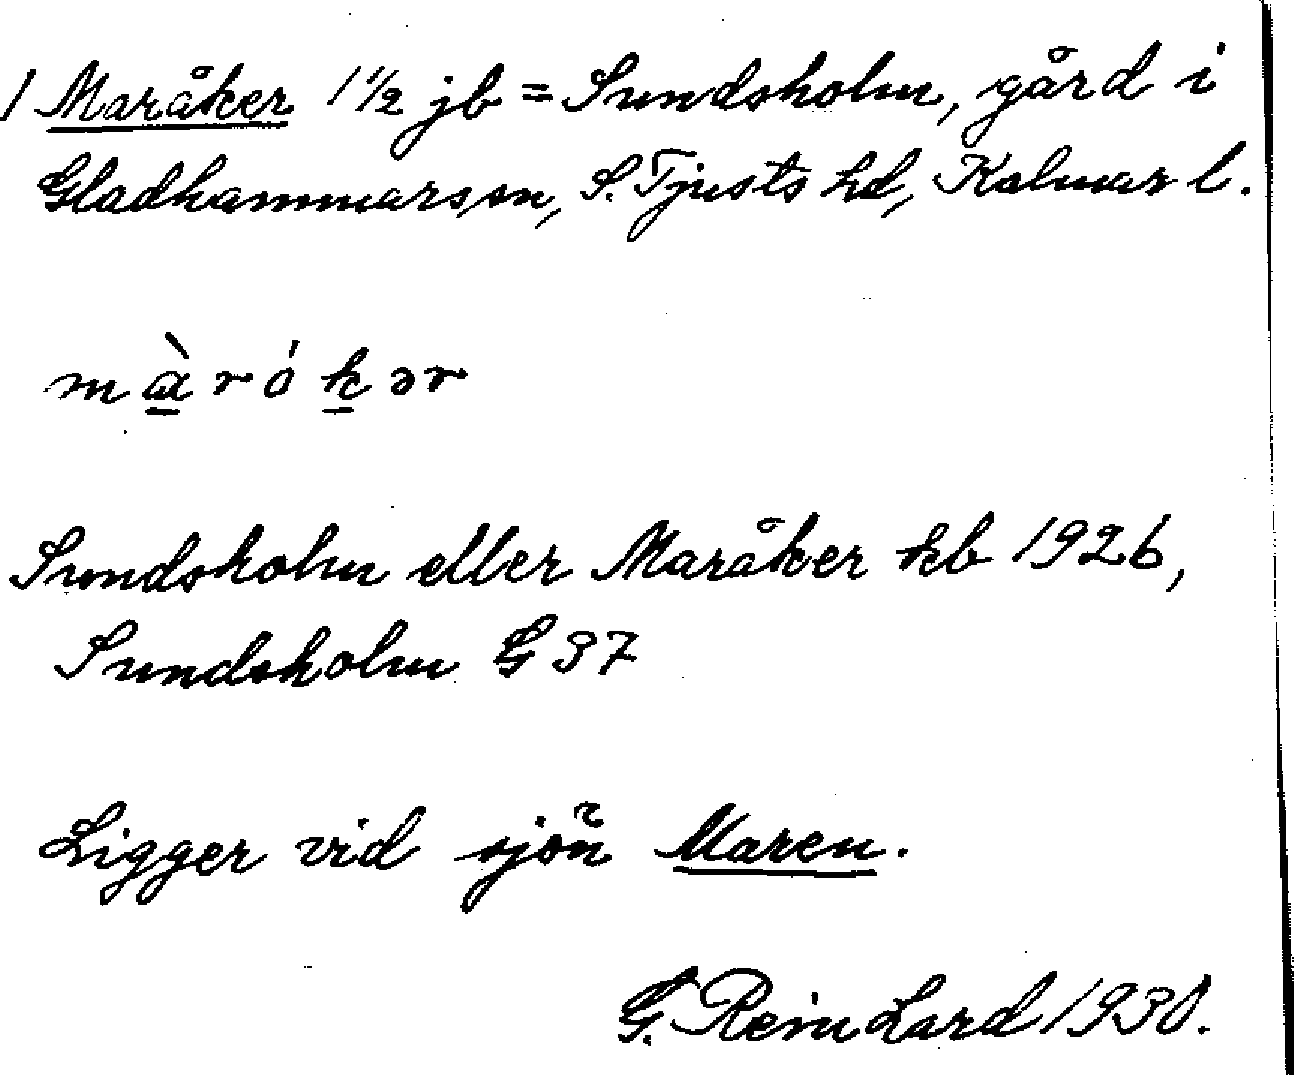 1 Maråker 1 1/2 jb = Sundsholm, gård i
Gladhammars sn, S. Tjusts hd, Kalmar l.
mὰrókər
Sundsholm eller Maråker kb 1926,
Sundsholm G 37
Ligger vid sjön Maren.
G. Reinhard 1930.